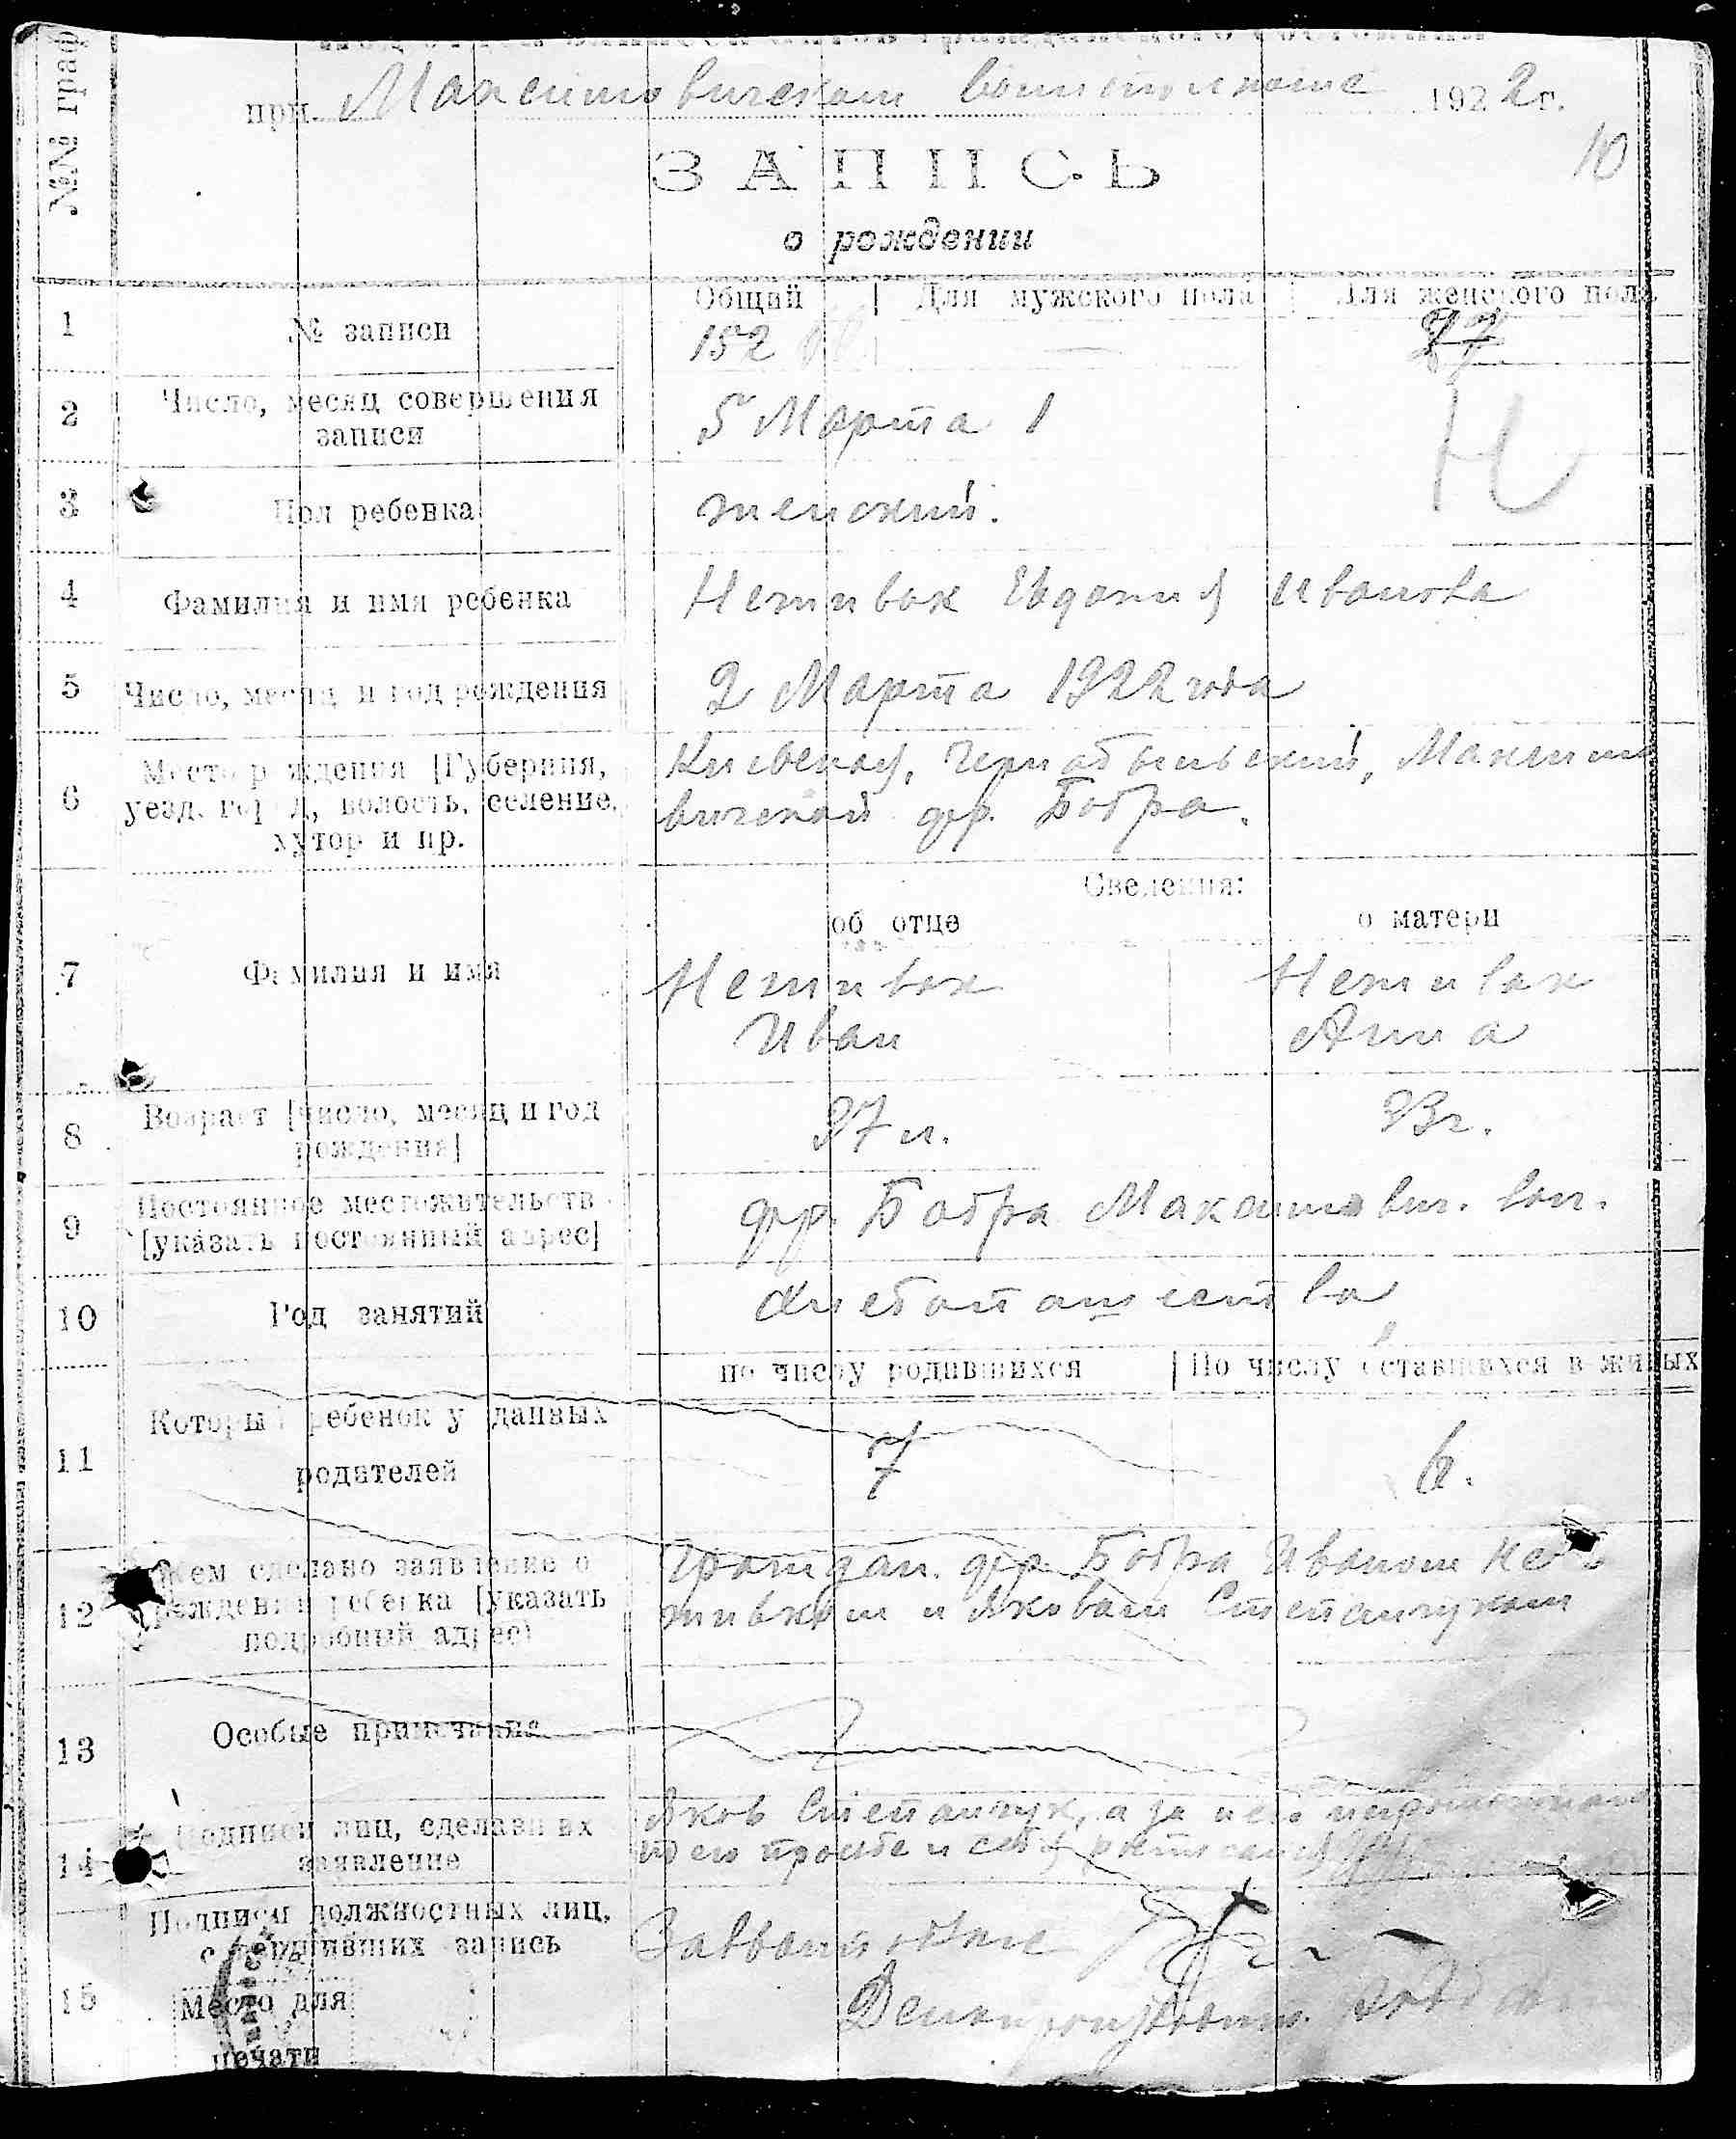 №№ граф
при Максимовическом волисполкоме 1922 г.
10
ЗАПИСЬ
о рождении
Общий | Для мужского пола | Для женского пола
1 № записи 152 — 77
2 Число, месяц совершения
записи 5 Марта
Н
3 Пол ребенка женский.
4 Фамилия и имя ребенка Нетивак Евдокия Иванова
5 Число, месяц и год рождения 2 Марта 1922 года
6 Место рождения [Губерния,
уезд, город, волость, селение,
хутор и пр.
Киевской, Чернобыльский, Максимо
вичской дер. Бобра.
Сведения:
об отце о матери
7 Фамилия и имя Нетивак Нетивак
Иван Анна
8 Возраст [число, месяц и год
рождения] 37 л. 33 г.
9 Постоянное местожительств
[указать постоянный адрес] дер. Бобра Максимович. вол.
10 Род занятий Хлебопашество
по числу родившихся | По числу оставшихся в живых
11 Который ребенок у данных
родителей 7 6.
12 Кем сделано заявление о
рождении ребенка [указать
подробный адрес]
Граждан. дер. Бобра Иваном Не
тивком и Яковом Степанчуком
13 Особые примечания
14 Подписи лиц, сделавших
заявление
Яков Степанчук, а за него неграмотного
по его просьбе и себя расписался
15 Подписи должностных лиц,
совершивших запись
Делопроизводит.
Место для
печати